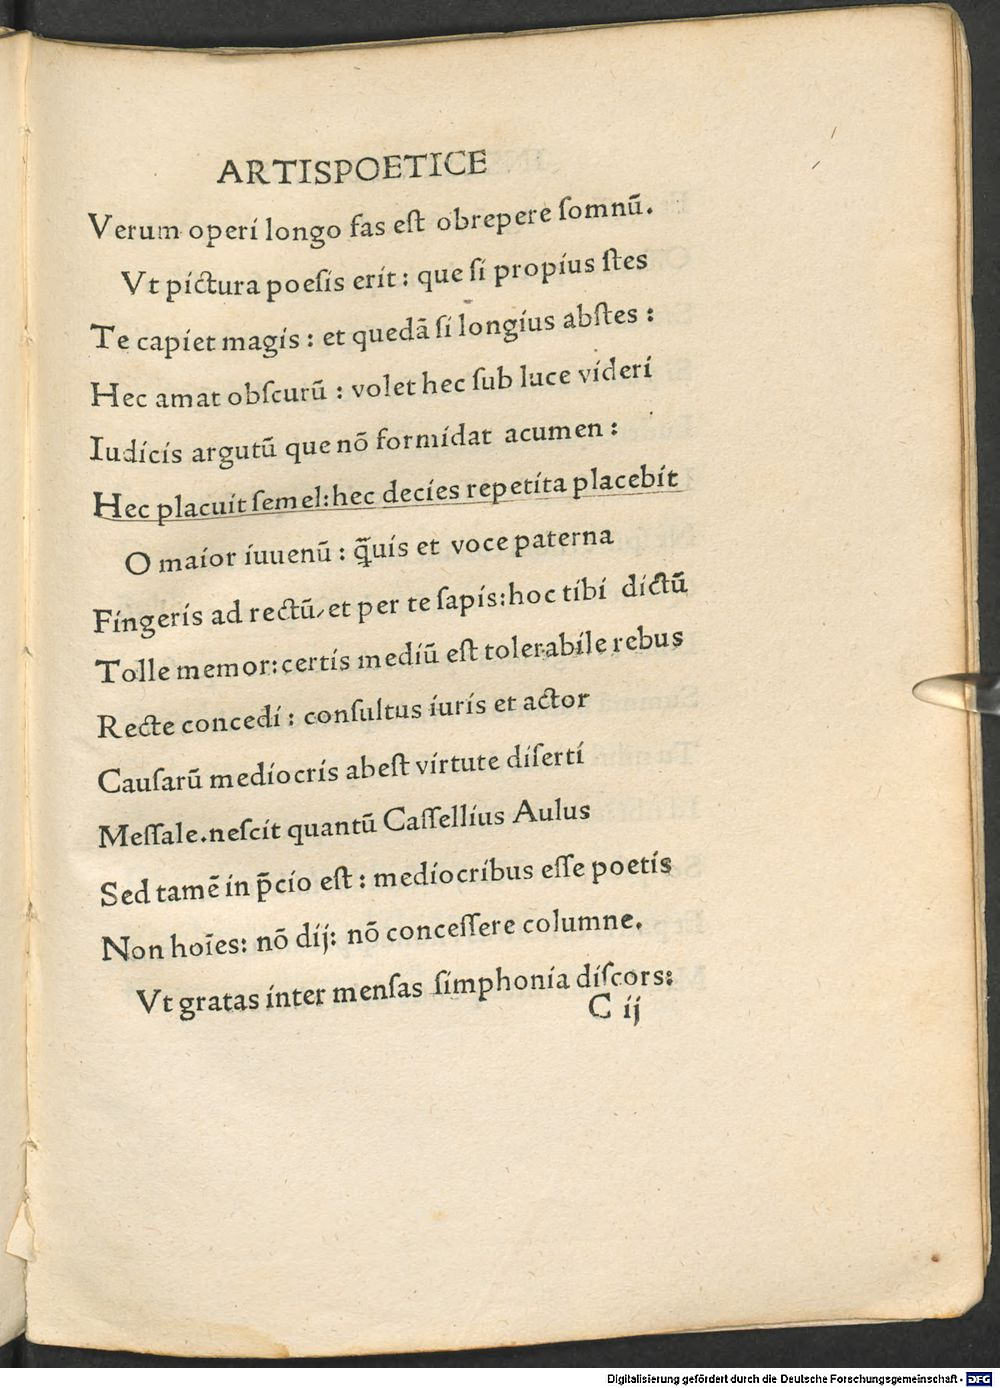 ARTISPOETICE
Verum operi longo fas eſt obrepere ſomnū.
Vt pictura poeſis erit: que ſi propius ſtes
Te capiet magis: et quedā ſi longius abſtes:
Hec amat obſcurū: volet hec ſub luce videri
Iudicis argutū que nō formidat acumen:
Hec placuit ſemel: hec decies repetita placebit
O maior iuuenū: q̄uis et voce paterna
Fingeris ad rectū, et per te ſapis: hoc tibi dictū
Tolle memor: certis mediū eſt tolerabile rebus
Recte concedi: conſultus iuris et actor
Cauſarū mediocris abeſt virtute diſerti
Meſſale. neſcit quantū Caſſellius Aulus
Sed tamē in p̄cio eſt: mediocribus eſſe poetis
Non hoīes: nō dij: nō conceſſere columne.
Vt gratas inter menſas ſimphonia diſcors:
C ij
Digitalisierung gefördert durch die Deutsche Forschungsgemeinschaft - DFG